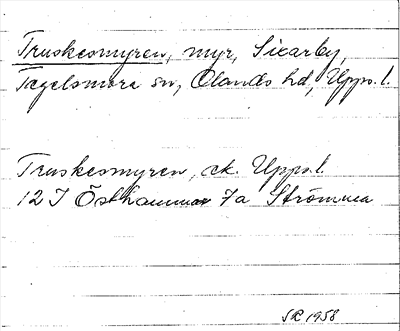 Truskesmyren, myr, Sixarby,
Tegelsmora sn, Olands hd, Upps. l.
Truskesmyren, ek. Upps. l.
12 I Östhammar 7a Strömma
SR 1958